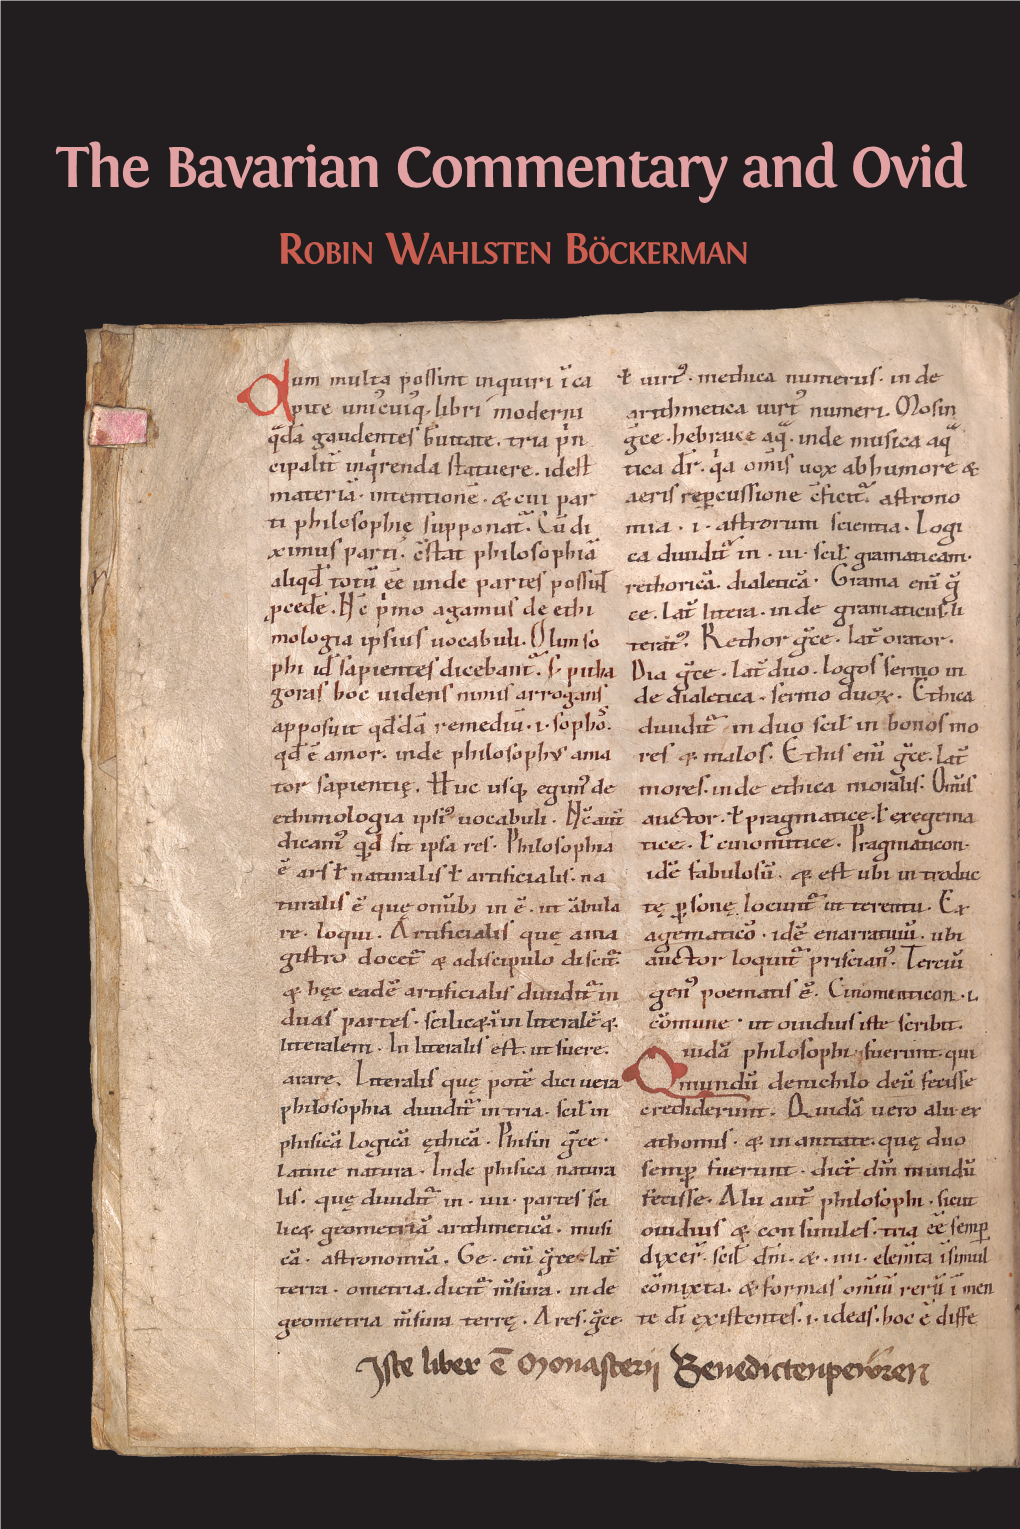 The Bavarian Commentary and Ovid
ROBIN WAHLSTEN BÖCKERMAN
Cum multa possint inquiri ī ca
pite unicuiq; libri moderni
qdā gaudentes breuitate. tria prin
cipalit inqrenda statuere. idest
materiā. intentionē. & cui par
ti philosophię supponat. Cū di
ximus parti. cstat philosophiā
aliqd totū ēē unde partes possint
pcedere. Hc pmo agamus de ethi
mologia ipsius uocabuli. Olim so
phi id sapientes dicebant. S; pitha
goras hoc uidens nimis arrogans
apposuit qddā remediū. i. sophos.
qd ē amor. inde philosophus ama
tor sapientię. Huc usq; egimus de
ethimologia ipsius uocabuli. Nc aut
dicamus qd sit ipsa res. Philosophia
ē ars ł naturalis ł artificialis. na
turalis ē quę omībus in ē. ut ābula
re. loqui. Artificialis quę a ma
gistro docet & a discipulo discit.
& hęc eadē artificialis diuidit in
duas partes. scilic& in literalē &
litteralem. In literalis est. ut suere.
arare. Literalis quę pote dici uera
philosophia diuidit in tria. scil in
phisicā logicā ęthicā. Phisin gce.
latine natura. Inde phisica natura
lis. quę diuidit in. iiii. partes sci
lic& geometriā arithmeticā. musi
cā. astronomiā. Ge. eni gce. lat
terra. ometria. dicit msura. inde
geometria msura terrę. Ares. gce.
ł uirtus. methica numerus. inde
arithmetica uirtus numeri. Mosin
gce. hebraice aq. inde musica aq
tica dr. qa omis uox ab humore &
aeris repcussione efficit. astrono
mia. i. astrorum scientia. Logi
ca diuidit in. iii. scil gramaticam.
rethoricā. dialeticā. Grama eni g
ce. Lat litera. inde gramaticus. li
teratus. Rethor gce. lat orator.
Dia gce. lat duo. logos sermo in
de dialetica. sermo duorum. Ethica
diuidit in duo scil in bonos mo
res & malos. Ethis eni gce. lat
mores. inde ethica moralis. Omis
auctor. ł pragmatice. ł exegema
tice. ł cinomitice. Pragmaticon.
idē fabulosū. & est ubi introduc
tę psonę locunt ut terentii. Ex
agematicō. idē enarratiuū. ubi
auctor loquit priscianus. Terciū
genus poematis ē. Cinomenticon. i.
cōmune. ut ouidius iste scribit.
Quidā philosophi fuerunt. qui
mundū de nichilo deū fecisse
crediderunt. Quidā uero alii ex
athomis. & inanitate. quę duo
semp fuerunt. dicūt dm mundū
fecisse. Alii aut philosophi. sicut
ouidius & consimiles. tria ēē semp
dixer. scil dm. &. iiii. elemta īsimul
cōmixta. & formas omiū rerū ī men
te di existentes. i. ideas. hoc ē diffe
Iste liber ē Monasterii Benedictenpewren